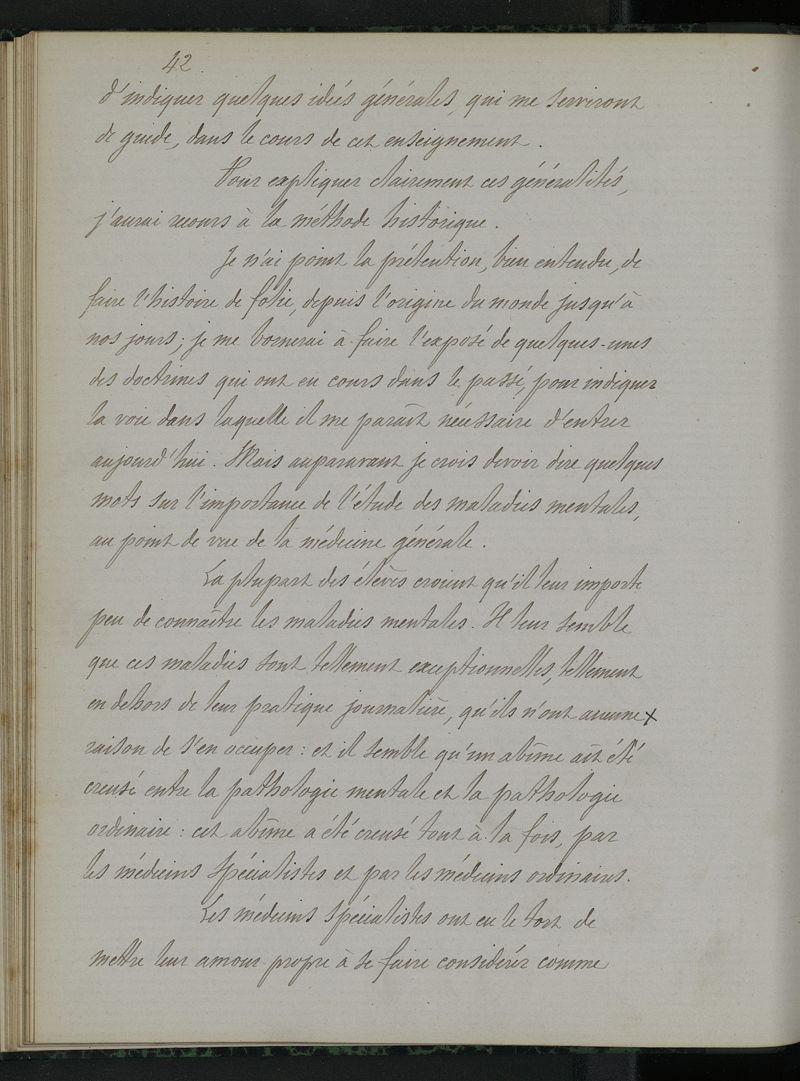 42.
d'indiquer quelques idées générales, qui me serviront
de guide, dans le cours de cet enseignement.
Pour expliquer clairement ces généralités,
j'aurai recours à la méthode historique.
Je n'ai point la prétention, bien entendu, de
faire l'histoire de folie, depuis l'origine du monde jusqu'à
nos jours; je me bornerai à faire l'exposé de quelques-unes
des doctrines qui ont eu cours dans le passé, pour indiquer
la voie dans laquelle il me paraît nécessaire d'entrer
aujourd'hui. Mais auparavant je crois devoir dire quelques
mots sur l'importance de l'étude des maladies mentales,
au point de vue de la médecine générale.
La plupart des élèves croient qu'il leur importe
peu de connaître les maladies mentales. Il leur semble
que ces maladies sont tellement exceptionnelles, tellement
en dehors de leur pratique journalière, qu'ils n'ont aucune x
raison de s'en occuper: et il semble qu'un abîme ait été
creusé entre la pathologie mentale et la pathologie
ordinaire: cet abîme a été creusé tout à la fois, par
les médecins spécialistes et par les médecins ordinaires.
Les médecins spécialistes ont eu le tort de
mettre leur amour propre à se faire considérér comme